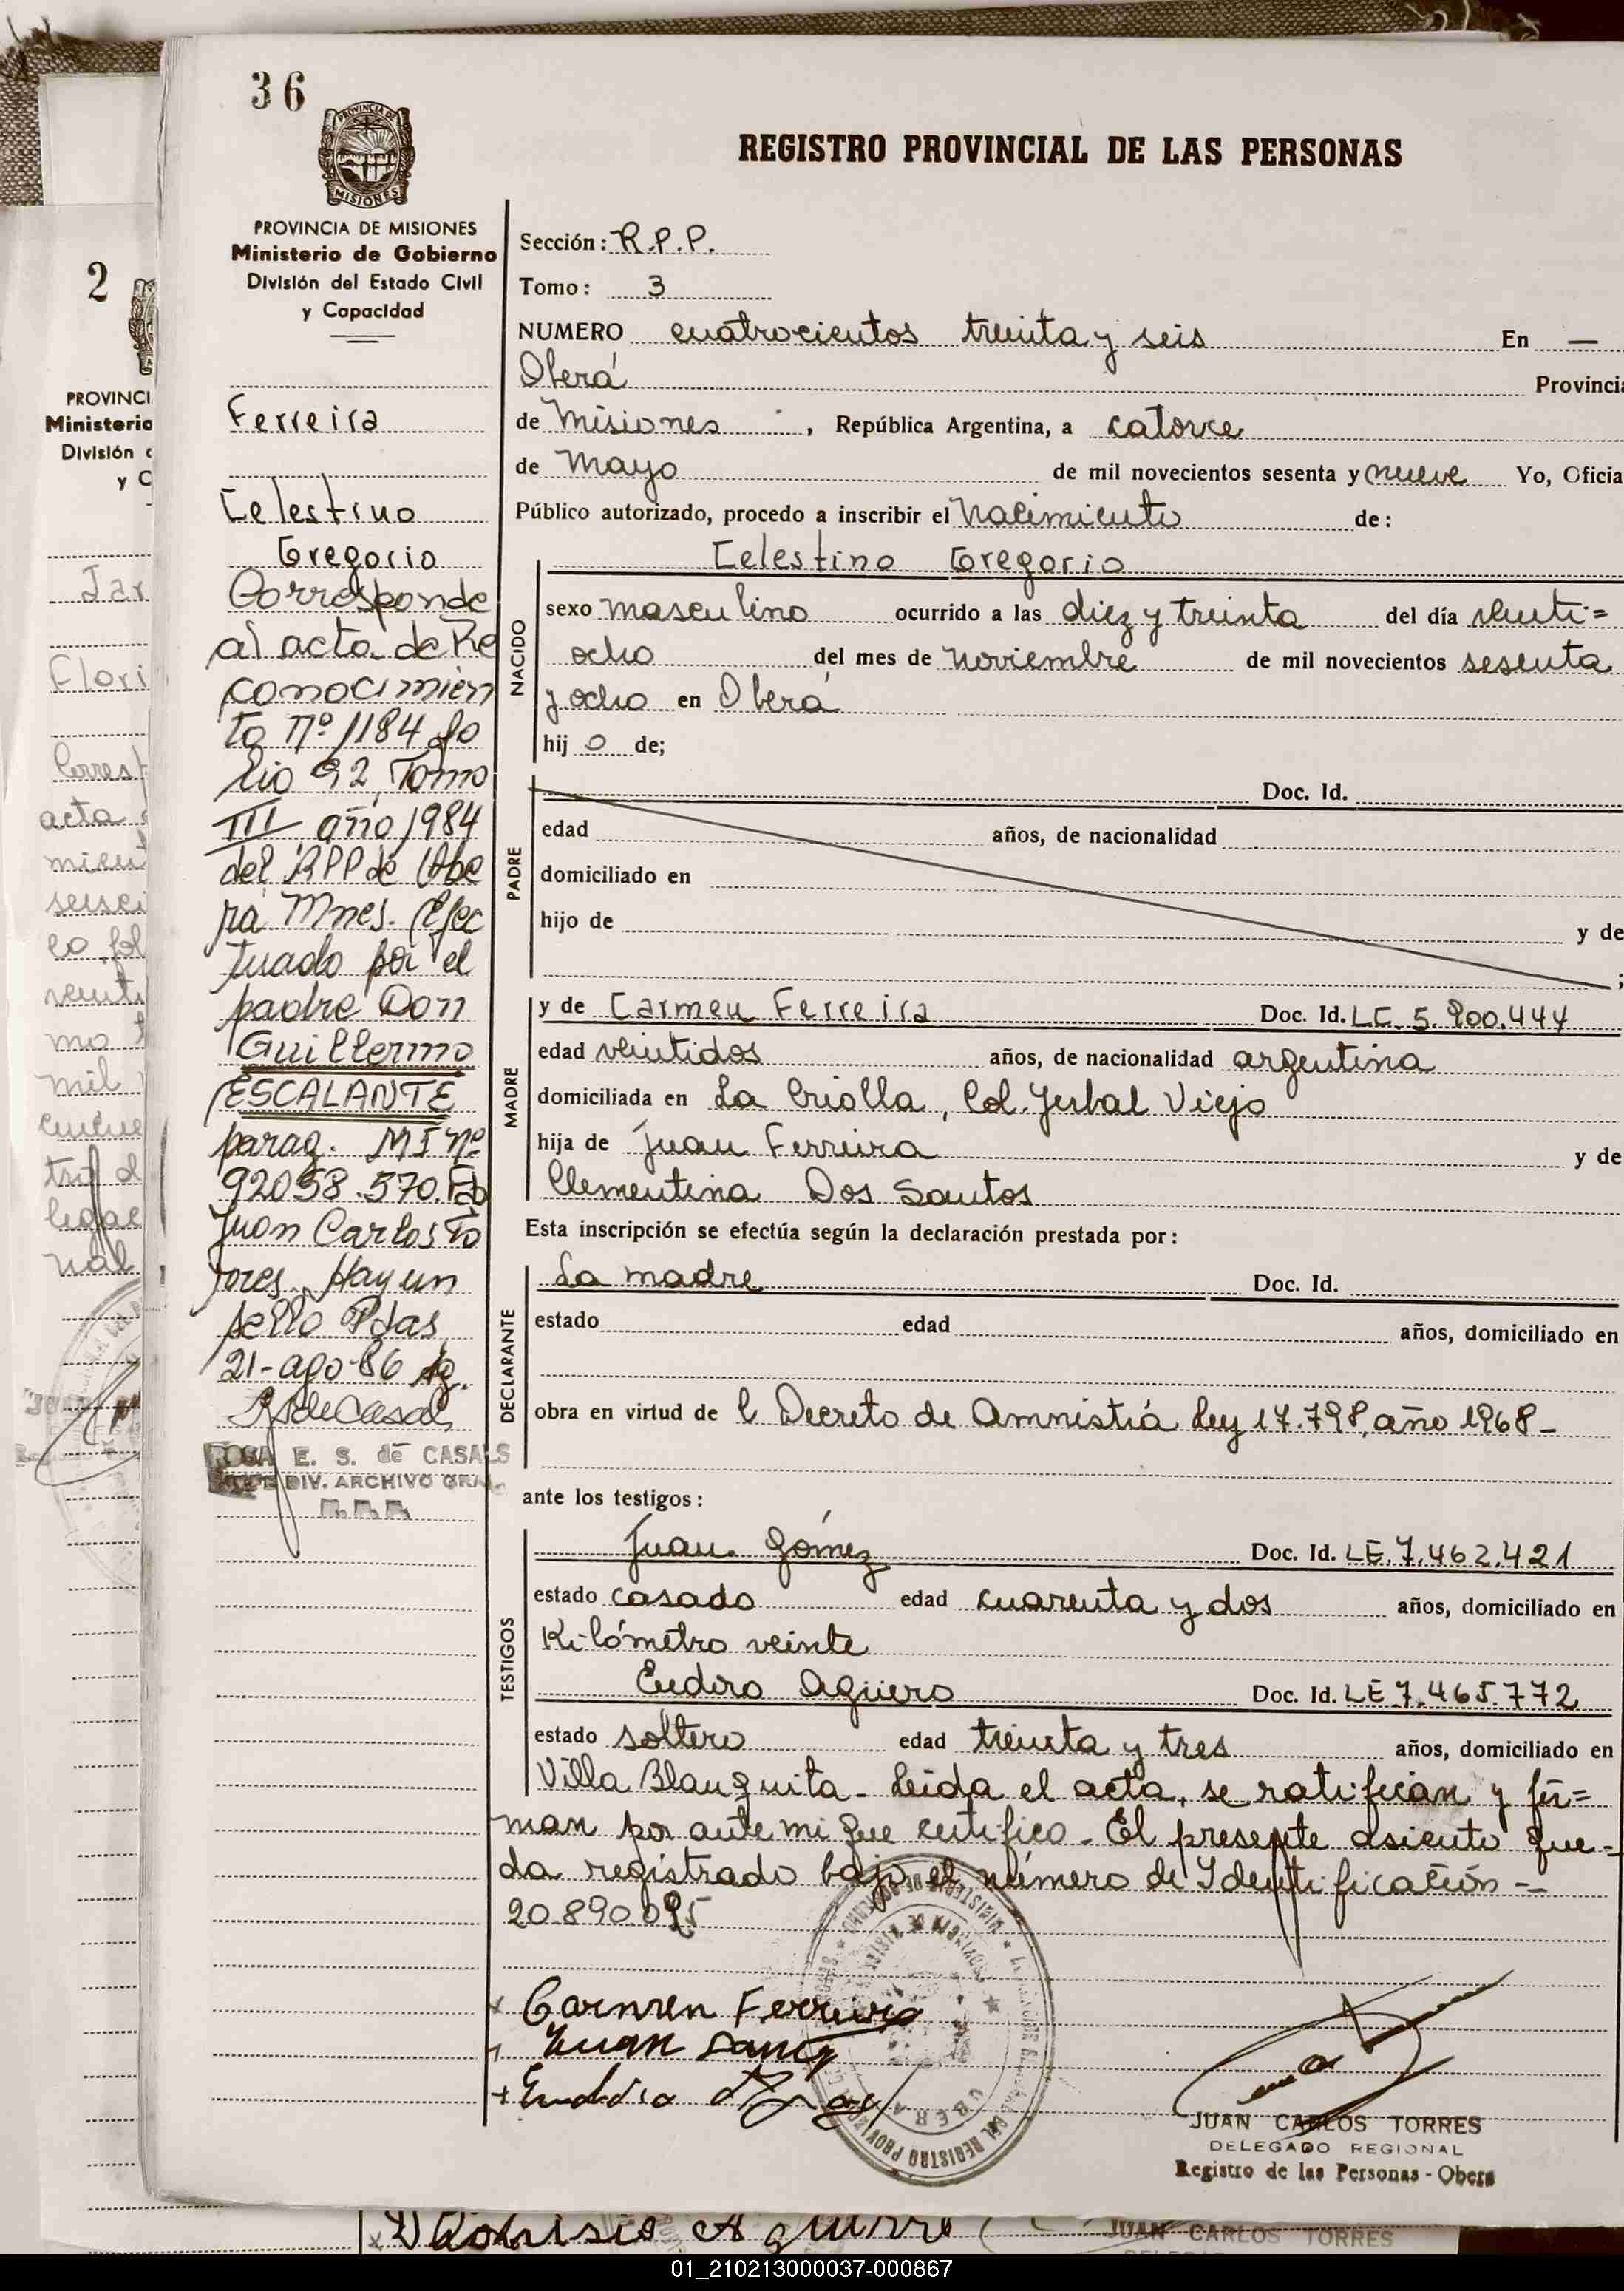 36
PROVINCIA DE
MISIONES
REGISTRO PROVINCIAL DE LAS PERSONAS
PROVINCIA DE MISIONES
Ministerio de Gobierno
División del Estado Civil
y Capacidad
Ferreira
Celestino
Gregorio
Corresponde
al acta de Re
conocimien
to nº 1184 fo
lio 92, Tomo
III año 1984
del RPP de Obe
rá Mnes. Efec
tuado por el
padre Don
Guillermo
ESCALANTE
parag. MI nº
92058.570. Fdo
Juan Carlos To
rres. Hay un
sello Pdas,
21-ago-86
ROSA E. S. de CASALS
JEFE DIV. ARCHIVO GRAL
R.P.P.
Sección: R.P.P.
Tomo: 3
NUMERO cuatrocientos treinta y seis En —
Oberá Provincia
de Misiones, República Argentina, a catorce
de Mayo de mil novecientos sesenta y nueve Yo, Oficia
Público autorizado, procedo a inscribir el Nacimiento de:
Celestino Gregorio
NACIDO
sexo masculino ocurrido a las diez y treinta del día veinti=
ocho del mes de noviembre de mil novecientos sesenta
y ocho en Oberá
hij o de;
PADRE
Doc. Id.
edad años, de nacionalidad
domiciliado en
hijo de y de
;
MADRE
y de Carmen Ferreira Doc. Id. LC. 5.900.444
edad veintidos años, de nacionalidad argentina
domiciliada en La Criolla, Col. Yerbal Viejo
hija de Juan Ferreira y de
Clementina Dos Santos
Esta inscripción se efectúa según la declaración prestada por:
DECLARANTE
La madre Doc. Id.
estado edad años, domiciliado en
obra en virtud de l Decreto de Amnistiá Ley 17.798, año 1968-
ante los testigos:
TESTIGOS
Juan Gómez Doc. Id. LE.7.462.421
estado casado edad cuarenta y dos años, domiciliado en
Kilómetro veinte
Eudoro Aguero Doc. Id. LE 7.465.772
estado soltero edad treinta y tres años, domiciliado en
Villa Blanquita - Leida el acta, se ratifican y fir=
man por ante mi que certifico - El presente asiento que=
da registrado bajo el número de Identificación --
20.890.095
Carmen Ferreira
Juan
OBERA
JUAN CARLOS TORRES
DELEGADO REGIONAL
Registro de las Personas - Obera
2
PROVINCI
Ministerio
División
y C
Flori
acta
mil
JUAN CARLOS TORRES
01_210213000037-000867